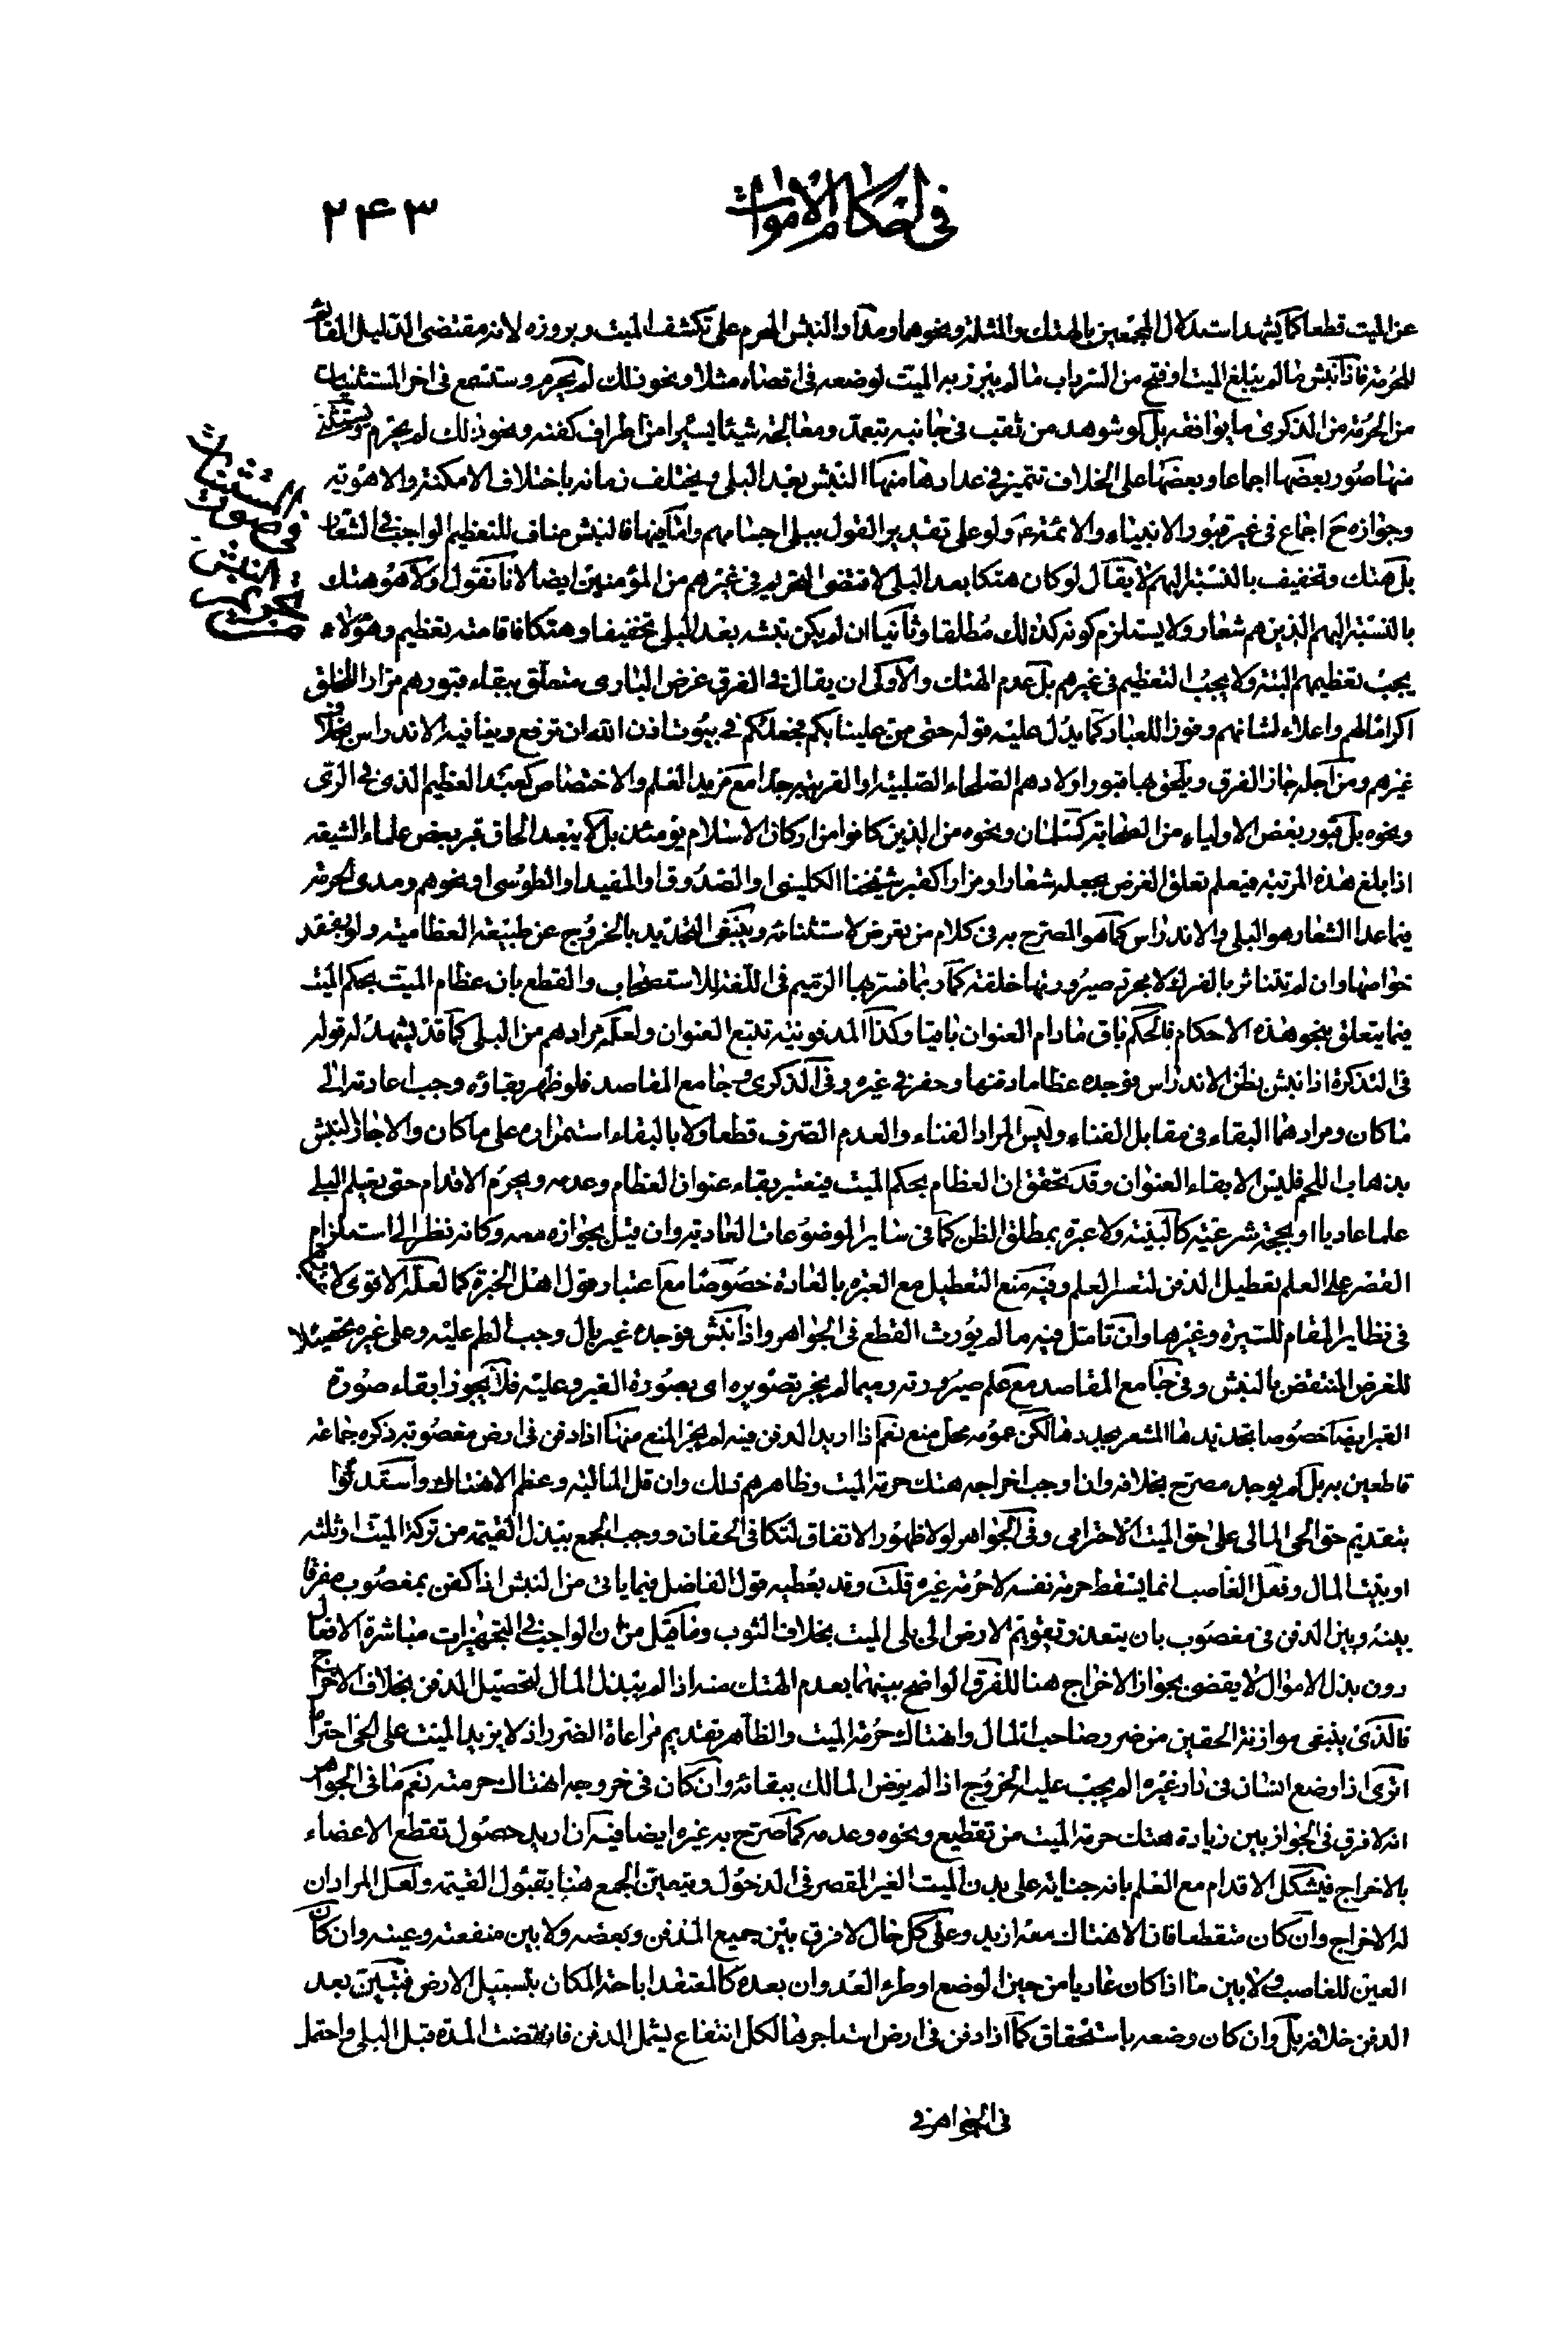 في احكام الاموات
۲۴۳
عن الميت قطعا كما يشهد استدلال المجمعين بالهتك والمثلة ونحوهما ومدار النبش المحرم على تكشف الميت وبروزه لانه مقتضى الدليل القائم
للحرمة فاذا نبش ما لم يبلغ الميت او فتح من السرداب ما لم يبرز به الميت لوضعه في اقصاه مثلا ونحو ذلك لم يحرم وستسمع في اخر المستثنيات
من الحرمة من الذكرى ما يوافقه بل لو شوهد من ثقب في جانبه بتعمد ومعالجة شيئا يسيرا من اطراف كفنه ونحو ذلك لم يحرم ويستثنى
منها صور بعضها اجماعا وبعضها على الخلاف تتميز في عدادها منها النبش بعد البلى ويختلف زمانه باختلاف الامكنة والاهوية
وجوازه ح اجماع في غير قبور الانبياء والائمة ع ولو على تقدير القول ببلى اجسامهم واما فيها فالنبش مناف للتعظيم الواجب في الشعار
بل هتك وتخفيف بالنسبة اليهم لا يقال لو كان هتكا بعد البلى لاقتضى التحريم في غيرهم من المؤمنين ايضا لانا نقول اولا هو هتك
بالنسبة اليهم الذين هم شعار ولا يستلزم كونه كذلك مطلقا وثانيا ان لم يكن نبشه بعد البلى تخفيفا وهتكا فاقامته تعظيم وهؤلاء
يجب تعظيمهم البتة ولا يجب التعظيم في غيرهم بل عدم الهتك والاولى ان يقال في الفرق غرض البارى متعلق ببقاء قبورهم مزارا للخلق
اكراما لهم واعلاء لشانهم وفوزا للعباد كما يدل عليه قوله حتى من علينا بكم فجعلكم في بيوت اذن الله ان ترفع وينافيه الاندراس بخلاف
غيرهم ومن اجله جاز الفرق ويلحق بها قبور اولادهم الصلحاء الصلبية او القريبة جدا مع مزيد العلم والاختصاص كعبد العظيم الذى في الرى
ونحوه بل قبور بعض الاولياء من الصحابة كسلمان ونحوه من الذين كانوا من اركان الاسلام يومئذ بل لا يبعد الحاق قبر بعض علماء الشيعة
اذا بلغ هذه المرتبة فيعلم تعلق الغرض بجعله شعارا ومزارا كقبر شيخنا الكليني او الصدوق او المفيد او الطوسى او نحوهم ومدى الحرمة
فيما عدا الشعار هو البلى والاندراس كما هو المصرح به في كلام من تعرض لاستثنائه وينبغى التحديد بالخروج عن طبيعة العظامية ولو بفقد
خواصها وان لم تتناثر بالفرك لا مجرد صيرورتها خلقة كما ربما فسر بها الرميم في اللغة للاستصحاب والقطع بان عظام الميت بحكم الميت
فيما يتعلق بنحو هذه الاحكام فالحكم باق مادام العنوان باقيا وكذا المدفونية تتبع العنوان ولعله مرادهم من البلى كما قد يشهد له قوله
في التذكرة اذا نبش بظن الاندراس فوجده عظاما دفنها وحفر في غيره وفي الذكرى وجامع المقاصد فلو ظهر بقاؤه وجب اعادته الى
ما كان ومرادهما البقاء في مقابل الفناء وليس المراد الفناء والعدم الصرف قطعا ولا بالبقاء استمراره على ما كان والا جاز النبش
بذهاب اللحم فليس الا بقاء العنوان وقد تحقق ان العظام بحكم الميت فيعتبر بقاء عنوان العظام وعدمه ويحرم الاقدام حتى يعلم البلى
علما عاديا او بحجة شرعية كالبينة ولا عبرة بمطلق الظن كما في ساير الموضوعات العادية وان قيل بجوازه معه وكانه نظر الى استلزام
القصر على العلم بعطيل الدفن لتعسر العلم وفيه منع التعطيل مع العبرة بالعادة خصوصا مع اعتبار قول اهل الخبرة كما لعله الاقوى
في نظاير المقام للسيرة وغيرها وان تامل فيه ما لم يورث القطع في الجواهر واذا نبش فوجده غير بال وجب الطم عليه وعلى غيره تحصيلا
للغرض المنتقض بالنبش وفي جامع المقاصد مع علم صيرورته رميما لم يجز تصويره اى بصورة القبر وعليه فلا يجوز ابقاء صورة
القبر ايضا خصوصا تجديدها المشعر بجددها لكن عمومه محل منع نعم اذا اريد الدفن فيه لم يجز المنع منها اذا دفن في ارض مغصوبة ذكره جماعة
قاطعين به بل لم يوجد مصرح بخلافه وان اوجب اخراجه هتك حرمة الميت وظاهرهم ذلك وان قل المالية وعظم الاهتاك واستدلوا
بتقديم حق الحى المالى على حق الميت الاحترامى وفي الجواهر لولا ظهور الاتفاق لتكافى الحقان ووجب الجمع ببذل القيمة من تركة الميت او ثلثه
او بيت المال وفعل الغاصب انما يسقط حرمة نفسه لا حرمة غيره قلت وقد يعطيه قول الفاضل فيما ياتى من النبش اذا كفن بمغصوب مفرقا
بينه وبين الدفن في مغصوب بان يتعذر تقويم الارض الى بلى الميت بخلاف الثوب وما قيل من ان الواجب في التجهيزات مباشرة الافعال
دون بذل الاموال لا يقضى بجواز الاخراج هنا للفرق الواضح بينهما بعدم الهتك منه اذا لم يبذل المال لتحصيل الدفن بخلاف الاخراج
فالذى ينبغى موازنة الحقين من ضرر صاحب المال واهتاك حرمة الميت والظاهر تقديم مراعاة الضرر اذ لا يزيد الميت على الحى احتراما
اترى اذا وضع انسان في دار غيره الم يجب عليه الخروج اذا لم يرض المالك ببقائه وان كان في خروجه اهتاك حرمته نعم ما في الجواهر
انه لا فرق في الجواز بين زيادة هتك حرمة الميت من تقطيع ونحوه وعدمه كما صرح به غيره ايضا فيه ان اريد حصول تقطع الاعضاء
بالاخراج فيشكل الاقدام مع العلم بانه جناية على بدن الميت الغير المقصر في الدخول ويتعين الجمع هنا بقبول القيمة ولعل المراد ان
له الاخراج وان كان متقطعا فان الاهتاك معه ازيد وعلى كل حال لا فرق بين جميع المدفن وبعضه ولا بين منفعته وعينه وان كان
العين للغاصب ولا بين ما اذا كان عاديا من حين الوضع او طرء العدوان بعده كالمعتقد اباحة المكان بتسبيل الارض فتبين بعد
الدفن خلافه بل وان كان وضعه باستحقاق كما اذا دفن في ارض استاجرها لكل انتفاع يشمل الدفن فانقضت المدة قبل البلى واحتمل
في الجواهر في
المستثنيات
في صورت
النبش